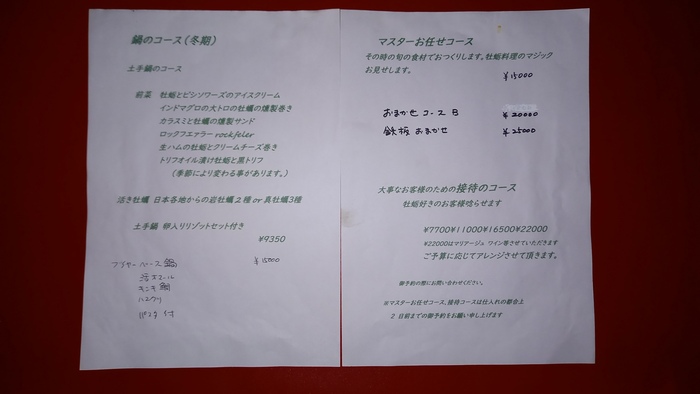 鍋のコース(冬期)
土手鍋のコース
前菜 牡蛎とビシソワーズのアイスクリーム
インドマグロの大トロの牡蠣の燻製巻き
カラスミと牡蠣の燻製サンド
ロックフエァラー rockfeler
生ハムの牡蛎とクリームチーズ巻き
トリフオイル漬け牡蛎と黒トリフ
(季節により変わる事があります。)
活き牡蠣 日本各地からの岩牡蠣2種 or 真牡蠣3種
土手鍋 卵入りリゾットセット付き
¥9350
鍋 ¥15000
付
マスターお任せコース
その時の旬の食材でおつくりします。牡蛎料理のマジック
お見せします。
¥15000
おまかせコース B ¥20000
鉄板おまかせ ¥25000
大事なお客様のための接待のコース
牡蛎好きのお客様唸らせます
¥7700¥11000¥16500¥22000
¥22000はマリアージュ ワイン等させていただきます
ご予算に応じてアレンジさせて頂きます。
御予約の際にお問い合わせください。
※マスターお任せコース、接待コースは仕入れの都合上
2 日前までの御予約をお願い申し上げます